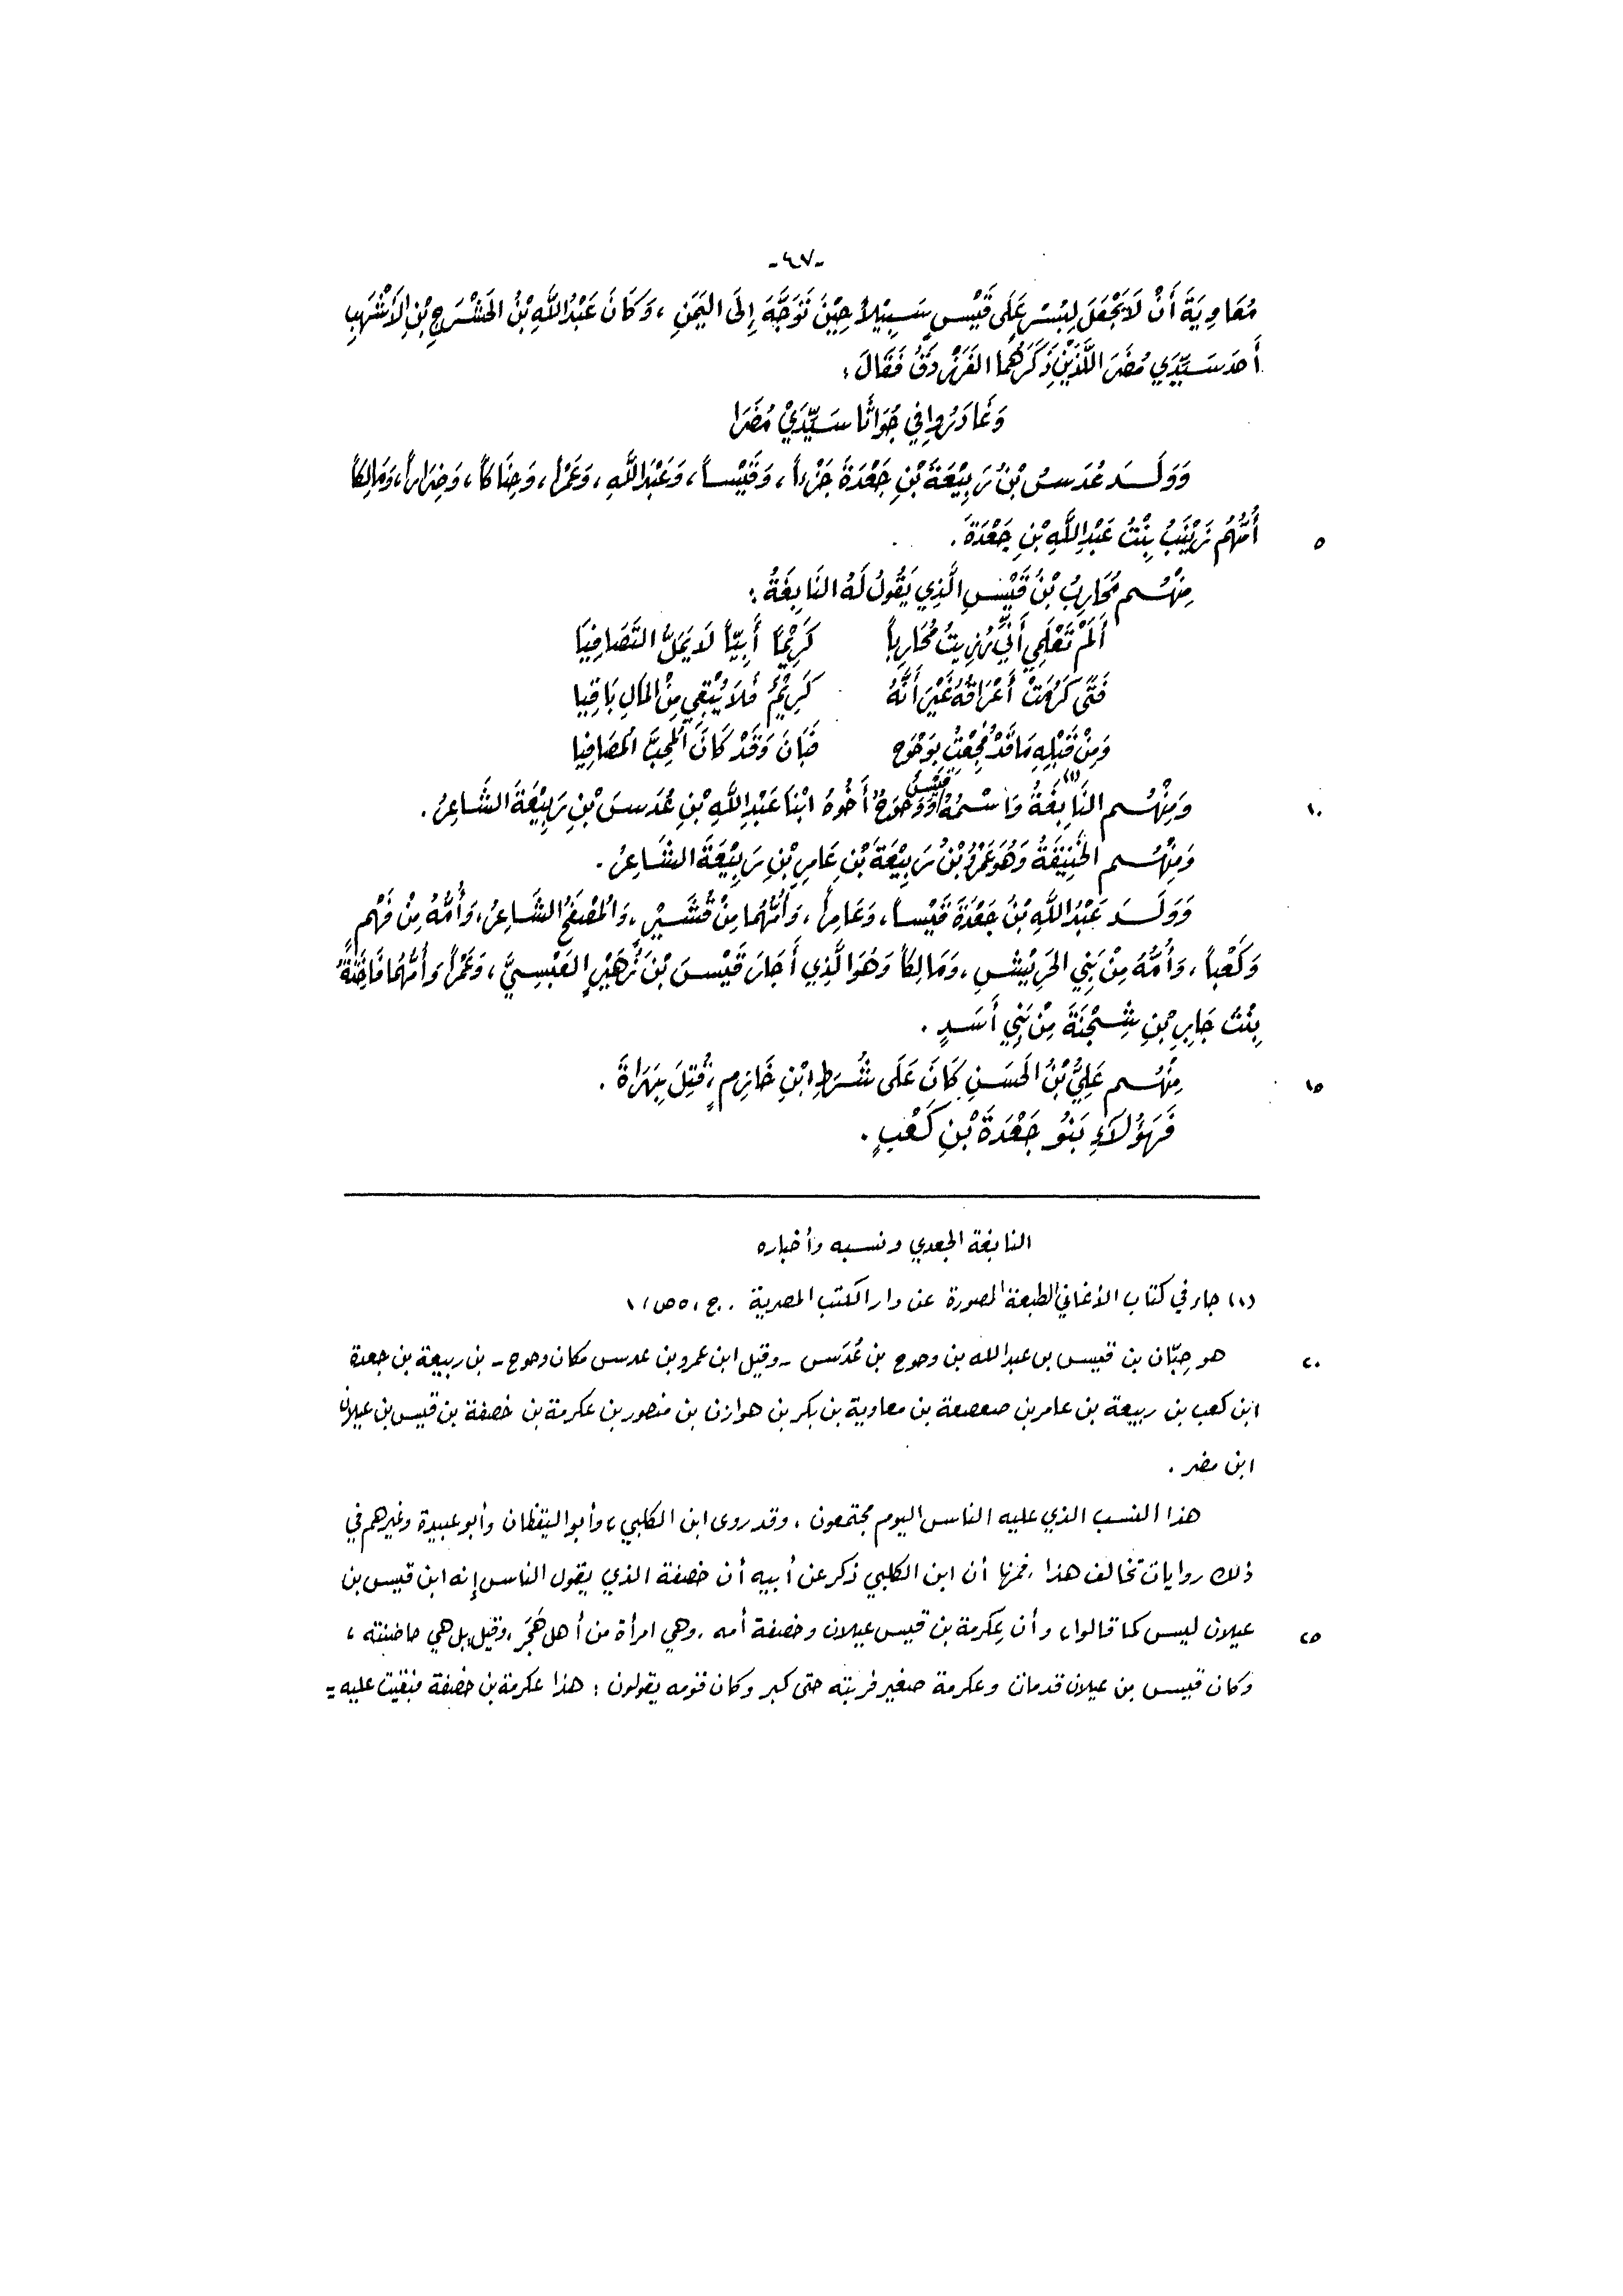 -٤٧-
مُعَاوِيَةَ أَنْ لَا يَجْعَلَ لِبُسْرٍ عَلَى قَيْسٍ سَبِيْلاً حِيْنَ تَوَجَّهَ إِلَى اليَمَنِ ، وَكَانَ عَبْدُ اللَّهِ بْنُ الحَشْرَجِ بْنِ الأَشْهَبِ
أَحدَ سَيِّدَي مُضَرَ اللَّذَيْنِ ذَكَرَهُمَا الفَرَزْدَقُ فَقَالَ :
وَغَادَرُوا فِي جُوَاثَا سَيِّدَيْ مُضَرَا
وَوَلَــدَ عُدَسُ بْنُ رَبِيْعَةَ بْنِ جَعْدَةَ جَزْءاً ، وَقَيْساً ، وَعَبْدَ اللَّهِ ، وَعَمْراً ، وَحِنَاكاً ، وَضِرَاراً ، وَمَالِكاً
٥ أُمُّهُم زَيْنَبُ بِنْتُ عَبْدِ اللَّهِ بْنِ جَعْدَةَ .
مِنْهُــم مُحَارِبُ بْنُ قَيْسٍ الَّذِي يَقُولُ لَهُ النَّابِغَةُ :
أَلَمْ تَعْلَمِي أَنِّي رُزِيتُ مُحَارِباً كَرِيْماً أَبِيّاً لَا يَمَلُّ التَّصَافِيَا
فَتًى كَرُمَتْ أَعْرَاقُهُ غَيْرَ أَنَّهُ كَرِيْمٌ فَلَا يُبْقِي مِنَ المَالِ بَاقِيا
وَمِنْ قَبْلِهِ مَا قَدْ فُجِعْتُ بِوَحْوَحٍ فَبَانَ وَقَدْ كَانَ المُحِبَّ المُصَافِيا
١٠ وَمِنْهُــم النَّابِغَةُ (١) وَاسْمُهُ قَيْسُ وَوَحْوَحٌ أَخُوهُ ابْنَا عَبْدِ اللَّهِ بْنِ عُدَسَ بْنِ رَبِيْعَةَ الشَّاعِرُ .
وَمِنْهُــم وَهُوَ عَمْرُو بْنُ رَبِيْعَةَ بْنِ عَامِرِ بْنِ رَبِيْعَةَ الشَّاعِرُ .
وَوَلَــدَ عَبْدُ اللَّهِ بْنُ جَعْدَةَ قَيْساً ، وَعَامِراً ، وَأُمُّهُمَا مِنْ قُشَــيْرٍ ، الشَّاعِرُ ، وَأُمُّهُ مِنْ فَهْمٍ
وَكَعْباً ، وَأُمُّهُ مِنْ بَنِي الحَرِيْشِ ، وَمَالِكاً وَهُوَ الَّذِي أَجَارَ قَيْسَ بْنَ زُهَيْرٍ العَبْسِيَّ ، وَعَمْراً وَأُمُّهُمَا فَاخِتَةُ
بِنْتُ جَابِرِ بْنِ شِجْنَةَ مِنْ بَنِي أَسَدٍ .
١٥ مِنْهُــم عَلِيُّ بْنُ الحَسَنِ كَانَ عَلَى شُرَطِ ابْنِ خَازِمٍ ، قُتِلَ بِهَرَاةَ .
فَهَؤُلَاءِ بَنُو جَعْدَةَ بْنِ كَعْبٍ .
النابغة الجعدي ونسبه وأخباره
(١) جاء في كتاب الأغاني الطبعة المصورة عن دار الكتب المصرية . ج ، ٥ ص ، ١
٢٠ هو حِبّان بن قيس بن عبد الله بن وحوح بن عُدَس - وقيل ابن عمرو بن عدس مكان وحوح - بن ربيعة بن جعدة
ابن كعب بن ربيعة بن عامر بن صعصعة بن معاوية بن بكر بن هوازن بن منصور بن عكرمة بن خصفة بن قيس بن عيلان
ابن مضر .
هذا النسب الذي عليه الناس اليوم مجتمعون ، وقد روى ابن الكلبي ، وأبو اليقظان وأبو عبيدة وغيرهم في
ذلك روايات تخالف هذا ، فمنها أن ابن الكلبي ذكر عن أبيه أن خصفة الذي يقول الناس إنه ابن قيس بن
٢٥ عيلان ليس كما قالوا ، وأن عِكرمة بن قيس عيلان وخصفة أمه ، وهي امرأة من أهل هَجَر ، وقيل بل هي حاضنته ،
وكان قيس بن عيلان قد مات وعكرمة صغير فربته حتى كبر وكان قومه يقولون : هذا عكرمة بن خصفة فبقيت عليه =